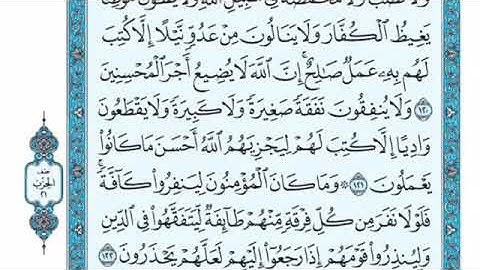 وَلَا نَصَبٌ وَلَا مَخْمَصَةٌ فِي سَبِيلِ اللَّهِ وَلَا يَطَـُٔونَ مَوْطِئًا
يَغِيظُ الْكُفَّارَ وَلَا يَنَالُونَ مِنْ عَدُوٍّ نَّيْلًا إِلَّا كُتِبَ
لَهُم بِهِۦ عَمَلٌ صَالِحٌ ۚ إِنَّ اللَّهَ لَا يُضِيعُ أَجْرَ الْمُحْسِنِينَ
١٢٠ وَلَا يُنفِقُونَ نَفَقَةً صَغِيرَةً وَلَا كَبِيرَةً وَلَا يَقْطَعُونَ
وَادِيًا إِلَّا كُتِبَ لَهُمْ لِيَجْزِيَهُمُ اللَّهُ أَحْسَنَ مَا كَانُوا
يَعْمَلُونَ ١٢١ ۞ وَمَا كَانَ الْمُؤْمِنُونَ لِيَنفِرُوا كَافَّةً ۚ
فَلَوْلَا نَفَرَ مِن كُلِّ فِرْقَةٍ مِّنْهُمْ طَائِفَةٌ لِّيَتَفَقَّهُوا فِي الدِّينِ
وَلِيُنذِرُوا قَوْمَهُمْ إِذَا رَجَعُوا إِلَيْهِمْ لَعَلَّهُمْ يَحْذَرُونَ ١٢٢
الحزب
٢١